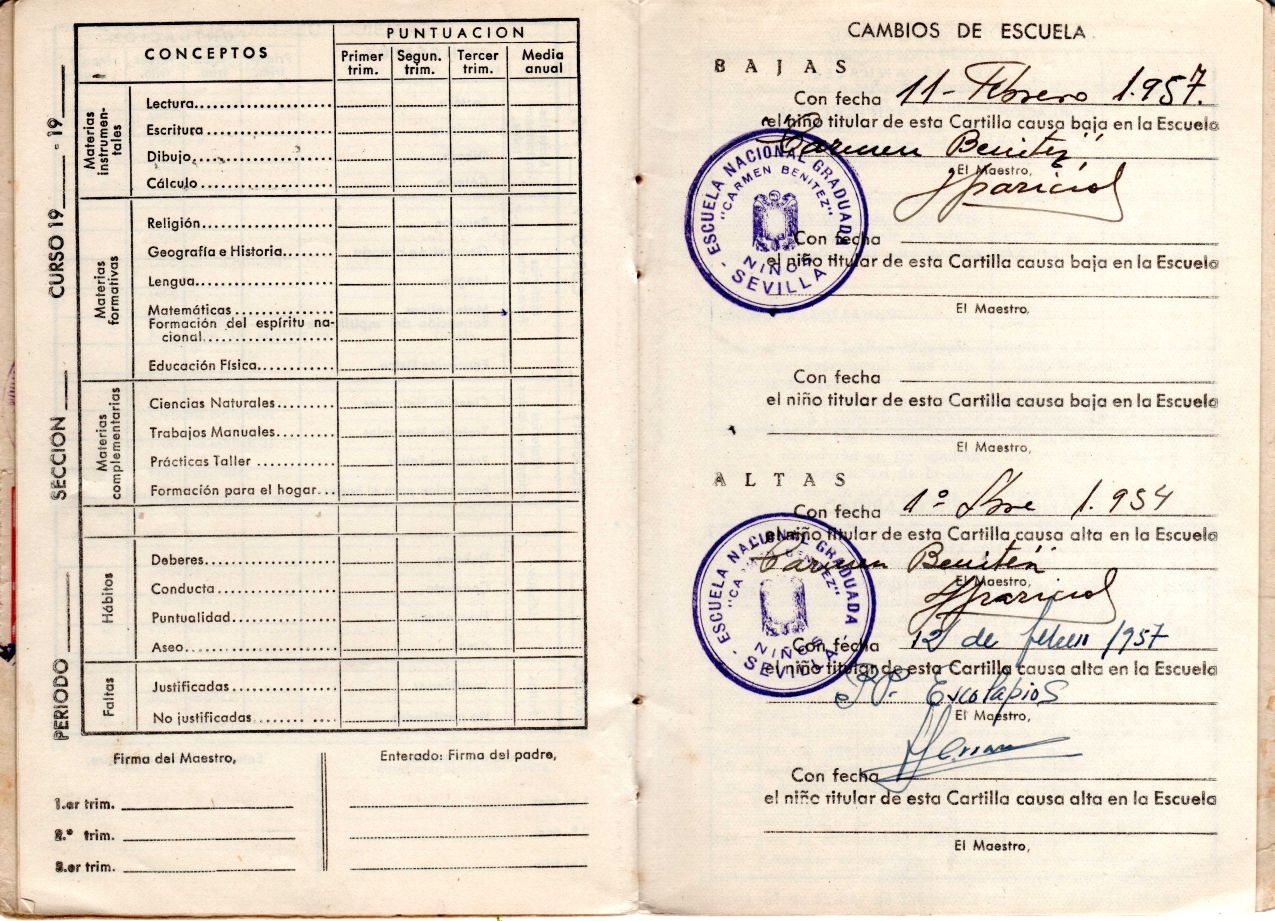 PERIODO SECCION CURSO 19 - 19
CONCEPTOS
PUNTUACION
Primer trim.
Segun. trim.
Tercer trim.
Media anual
Materias instrumen-tales
Lectura
Escritura
Dibujo
Cálculo
Materias formativas
Religión
Geografía e Historia
Lengua
Matemáticas
Formación del espíritu na-
cional
Educación Física
Materias complementarias
Ciencias Naturales
Trabajos Manuales
Prácticas Taller
Formación para el hogar
Hábitos
Deberes
Conducta
Puntualidad
Aseo
Faltas
Justificadas
No justificadas
Firma del Maestro,
Enterado: Firma del padre,
1.er trim.
2.º trim.
3.er trim.
CAMBIOS DE ESCUELA
BAJAS
Con fecha 11 - Febrero 1.957.
el niño titular de esta Cartilla causa baja en la Escuela
Carmen Benítez
El Maestro,
Aparicio
ESCUELA NACIONAL GRADUADA
"CARMEN BENITEZ"
NIÑOS
- SEVILLA -
Con fecha
el niño titular de esta Cartilla causa baja en la Escuela
El Maestro,
Con fecha
el niño titular de esta Cartilla causa baja en la Escuela
El Maestro,
ALTAS
Con fecha 1º 1.954
el niño titular de esta Cartilla causa alta en la Escuela
Carmen Benítez
El Maestro,
Aparicio
ESCUELA NACIONAL GRADUADA
"CARMEN BENITEZ"
NIÑOS
- SEVILLA -
Con fecha 12 de febrero 1957
el niño titular de esta Cartilla causa alta en la Escuela
PP. Escolapios
El Maestro,
Con fecha
el niño titular de esta Cartilla causa alta en la Escuela
El Maestro,